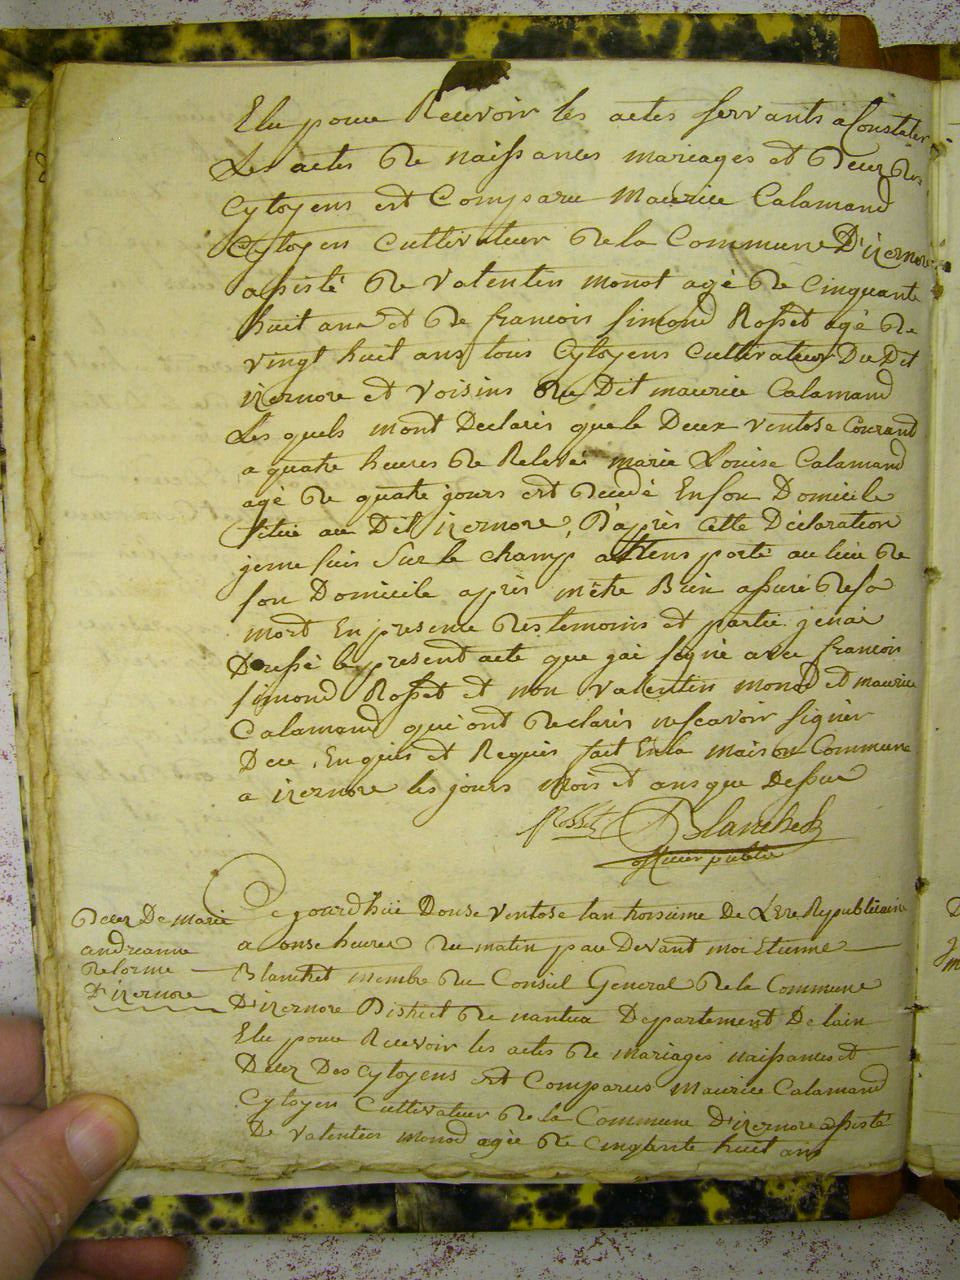 Elu pour Recevoir les actes servants a Constater
Les actes De naissances mariages et Decez Des
Cytoyens est Comparu Maurice Calamand
Cytoyen Cultivateur De la Commune D'izernore
assisté De Valentin monot agé De Cinquante
huit ans et De francois Simond Rosset agé De
vingt huit ans tous Cytoyens Cultivateur Du Dit
izernore et voisins Du Dit maurice Calamand
Les quels mont Declaris que le Deux ventose Courant
a quatre heures De Relevée marie Louise Calamand
agé De quatre jours est decedé En son Domicile
situé au Dit izernore, D'après Cette Déclaration
je me suis Sur le champ attens porté au lieu De
son Domicile après mêtre Bien assuré De sa
mort En presence Des temoins et partie jenai
Dressé le present acte que jai signé avec francois
simond Rosset et non valentin monod et maurice
Calamand qui ont declaris ne scavoir signer
Deu Enquis et Requis fait En la maison Commune
a izernore les jours mois et ans que Dessus
Rosset Blanchet
officier public
Ce jourd'hui Douse ventose lan troisieme De L'Ere Republicain
a onse heures Du matin par Devant moi Etienne
Blanchet membre Du Conseil General De la Commune
D'izernore District De nantua Departement De lain
Elu pour Recevoir les actes De mariages naissances et
Decez Des Cytoyens est Comparus Maurice Calamand
Cytoyen Cultivateur De la Commune D'izernore assisté
De valentin monod agée De Cinqante huit ans
Decez De marie
andreanne
Delorme
D'izernore